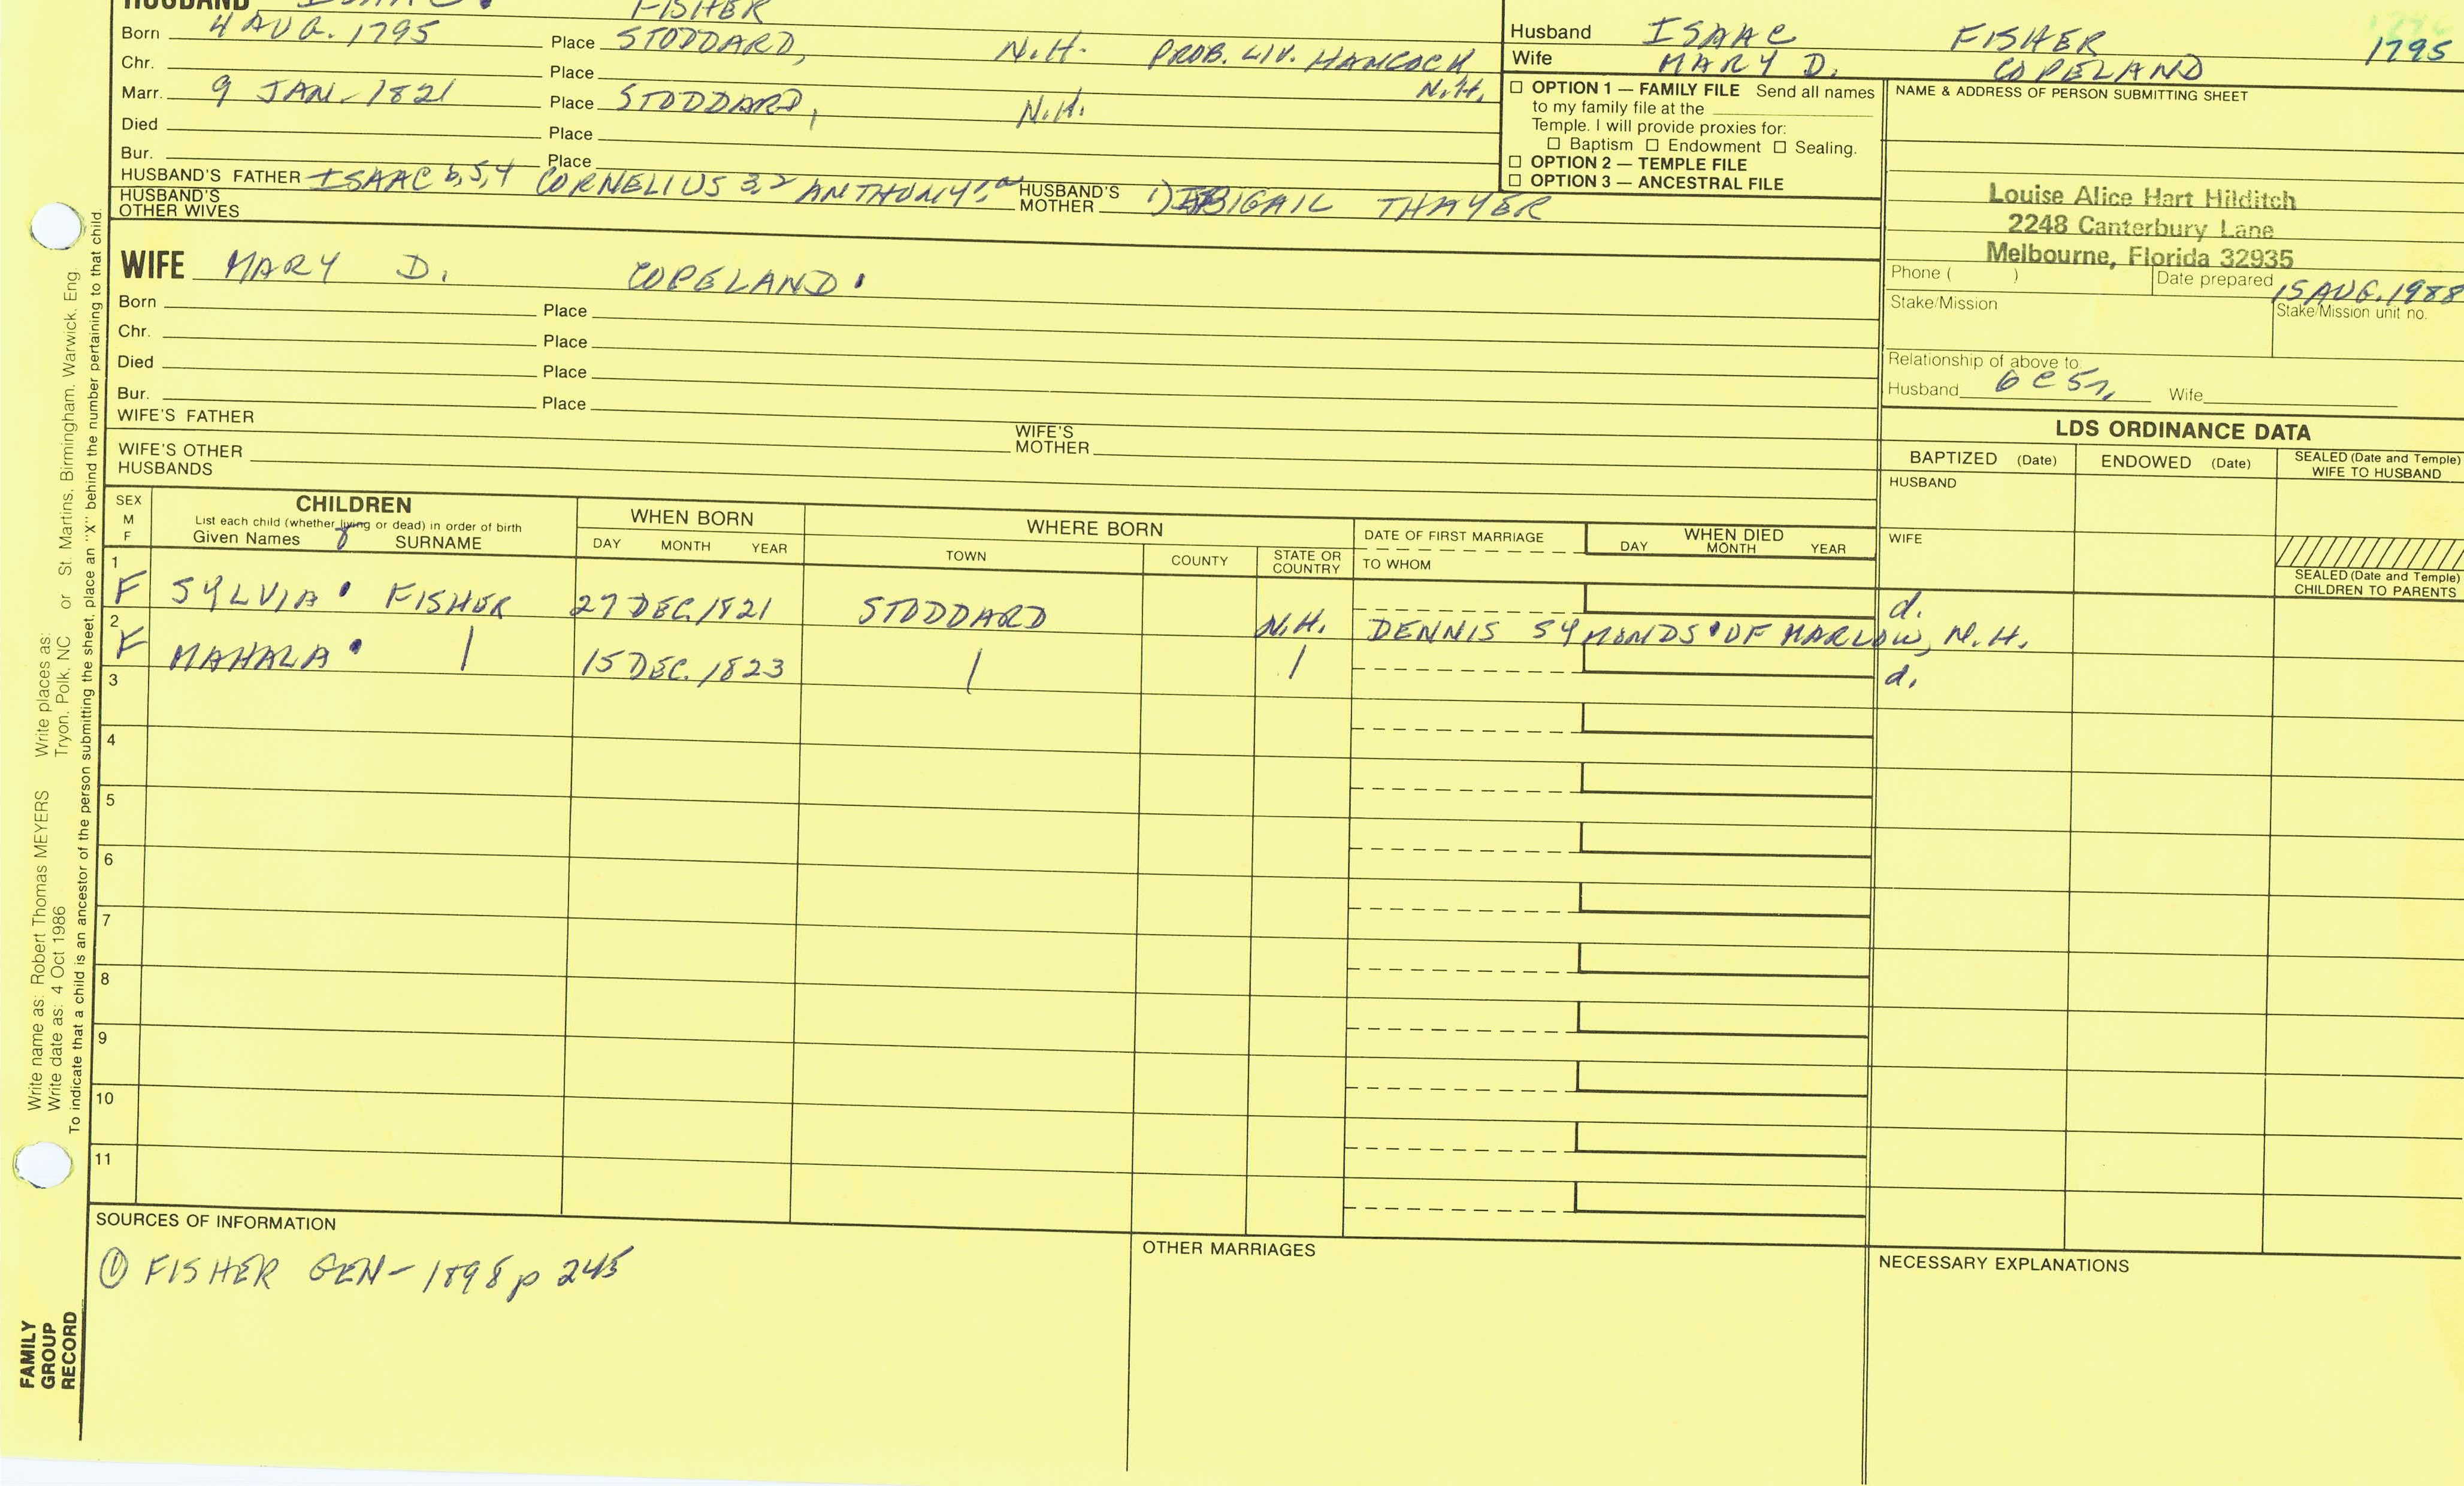 HUSBAND ISAAC . FISHER
Born 4 AUG. 1795 Place STODDARD, N.H. PROB. LIV. HANCOCK N.H.
Chr. Place
Marr. 9 JAN - 1821 Place STODDARD, N.H.
Died Place
Bur. Place
HUSBAND'S FATHER ISAAC 6,5,4 CORNELIUS 3,2 ANTHONY HUSBAND'S MOTHER 1) ABIGAIL THAYER
HUSBAND'S OTHER WIVES
Husband ISAAC FISHER 1795
Wife MARY D. COPELAND
☐ OPTION 1 — FAMILY FILE Send all names
to my family file at the
Temple. I will provide proxies for:
☐ Baptism ☐ Endowment ☐ Sealing.
☐ OPTION 2 — TEMPLE FILE
☐ OPTION 3 — ANCESTRAL FILE
NAME & ADDRESS OF PERSON SUBMITTING SHEET
Louise Alice Hart Hilditch
2248 Canterbury Lane
Melbourne, Florida 32935
Phone ( ) Date prepared 15 AUG. 1988
Stake/Mission Stake/Mission unit no.
Relationship of above to:
Husband 6 C 5 r, Wife
WIFE MARY D. COPELAND .
Born Place
Chr. Place
Died Place
Bur. Place
WIFE'S FATHER WIFE'S MOTHER
WIFE'S OTHER HUSBANDS
LDS ORDINANCE DATA
BAPTIZED (Date) ENDOWED (Date) SEALED (Date and Temple) WIFE TO HUSBAND
HUSBAND
WIFE
SEALED (Date and Temple) CHILDREN TO PARENTS
SEX M F
CHILDREN
List each child (whether living or dead) in order of birth
Given Names SURNAME
WHEN BORN
DAY MONTH YEAR
WHERE BORN
TOWN COUNTY STATE OR COUNTRY
DATE OF FIRST MARRIAGE
TO WHOM
WHEN DIED
DAY MONTH YEAR
1 F SYLVIA . FISHER 27 DEC. 1821 STODDARD N.H. d.
DENNIS SYMONDS . OF MARLOW, N.H.
2 F MAHALA . | 15 DEC. 1823 | | d.
3
4
5
6
7
8
9
10
11
SOURCES OF INFORMATION
① FISHER GEN - 1898 p 245
OTHER MARRIAGES
NECESSARY EXPLANATIONS
Write name as: Robert Thomas MEYERS Write places as: St. Martins, Birmingham, Warwick, Eng.
Write date as: 4 Oct 1986 Tryon, Polk, NC or
To indicate that a child is an ancestor of the person submitting the sheet, place an "X" behind the number pertaining to that child.
FAMILY
GROUP
RECORD